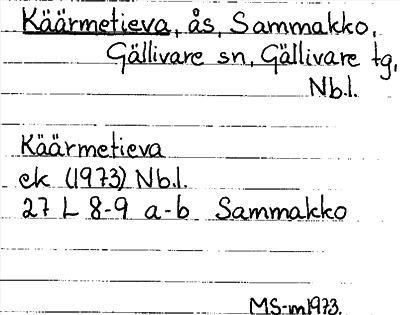 Käärmetieva, ås, Sammakko,
Gällivare sn, Gällivare tg,
Nb.l.
Käärmetieva
ek (1973) Nb.l.
27 L 8-9 a-b Sammakko
MS-m1973.